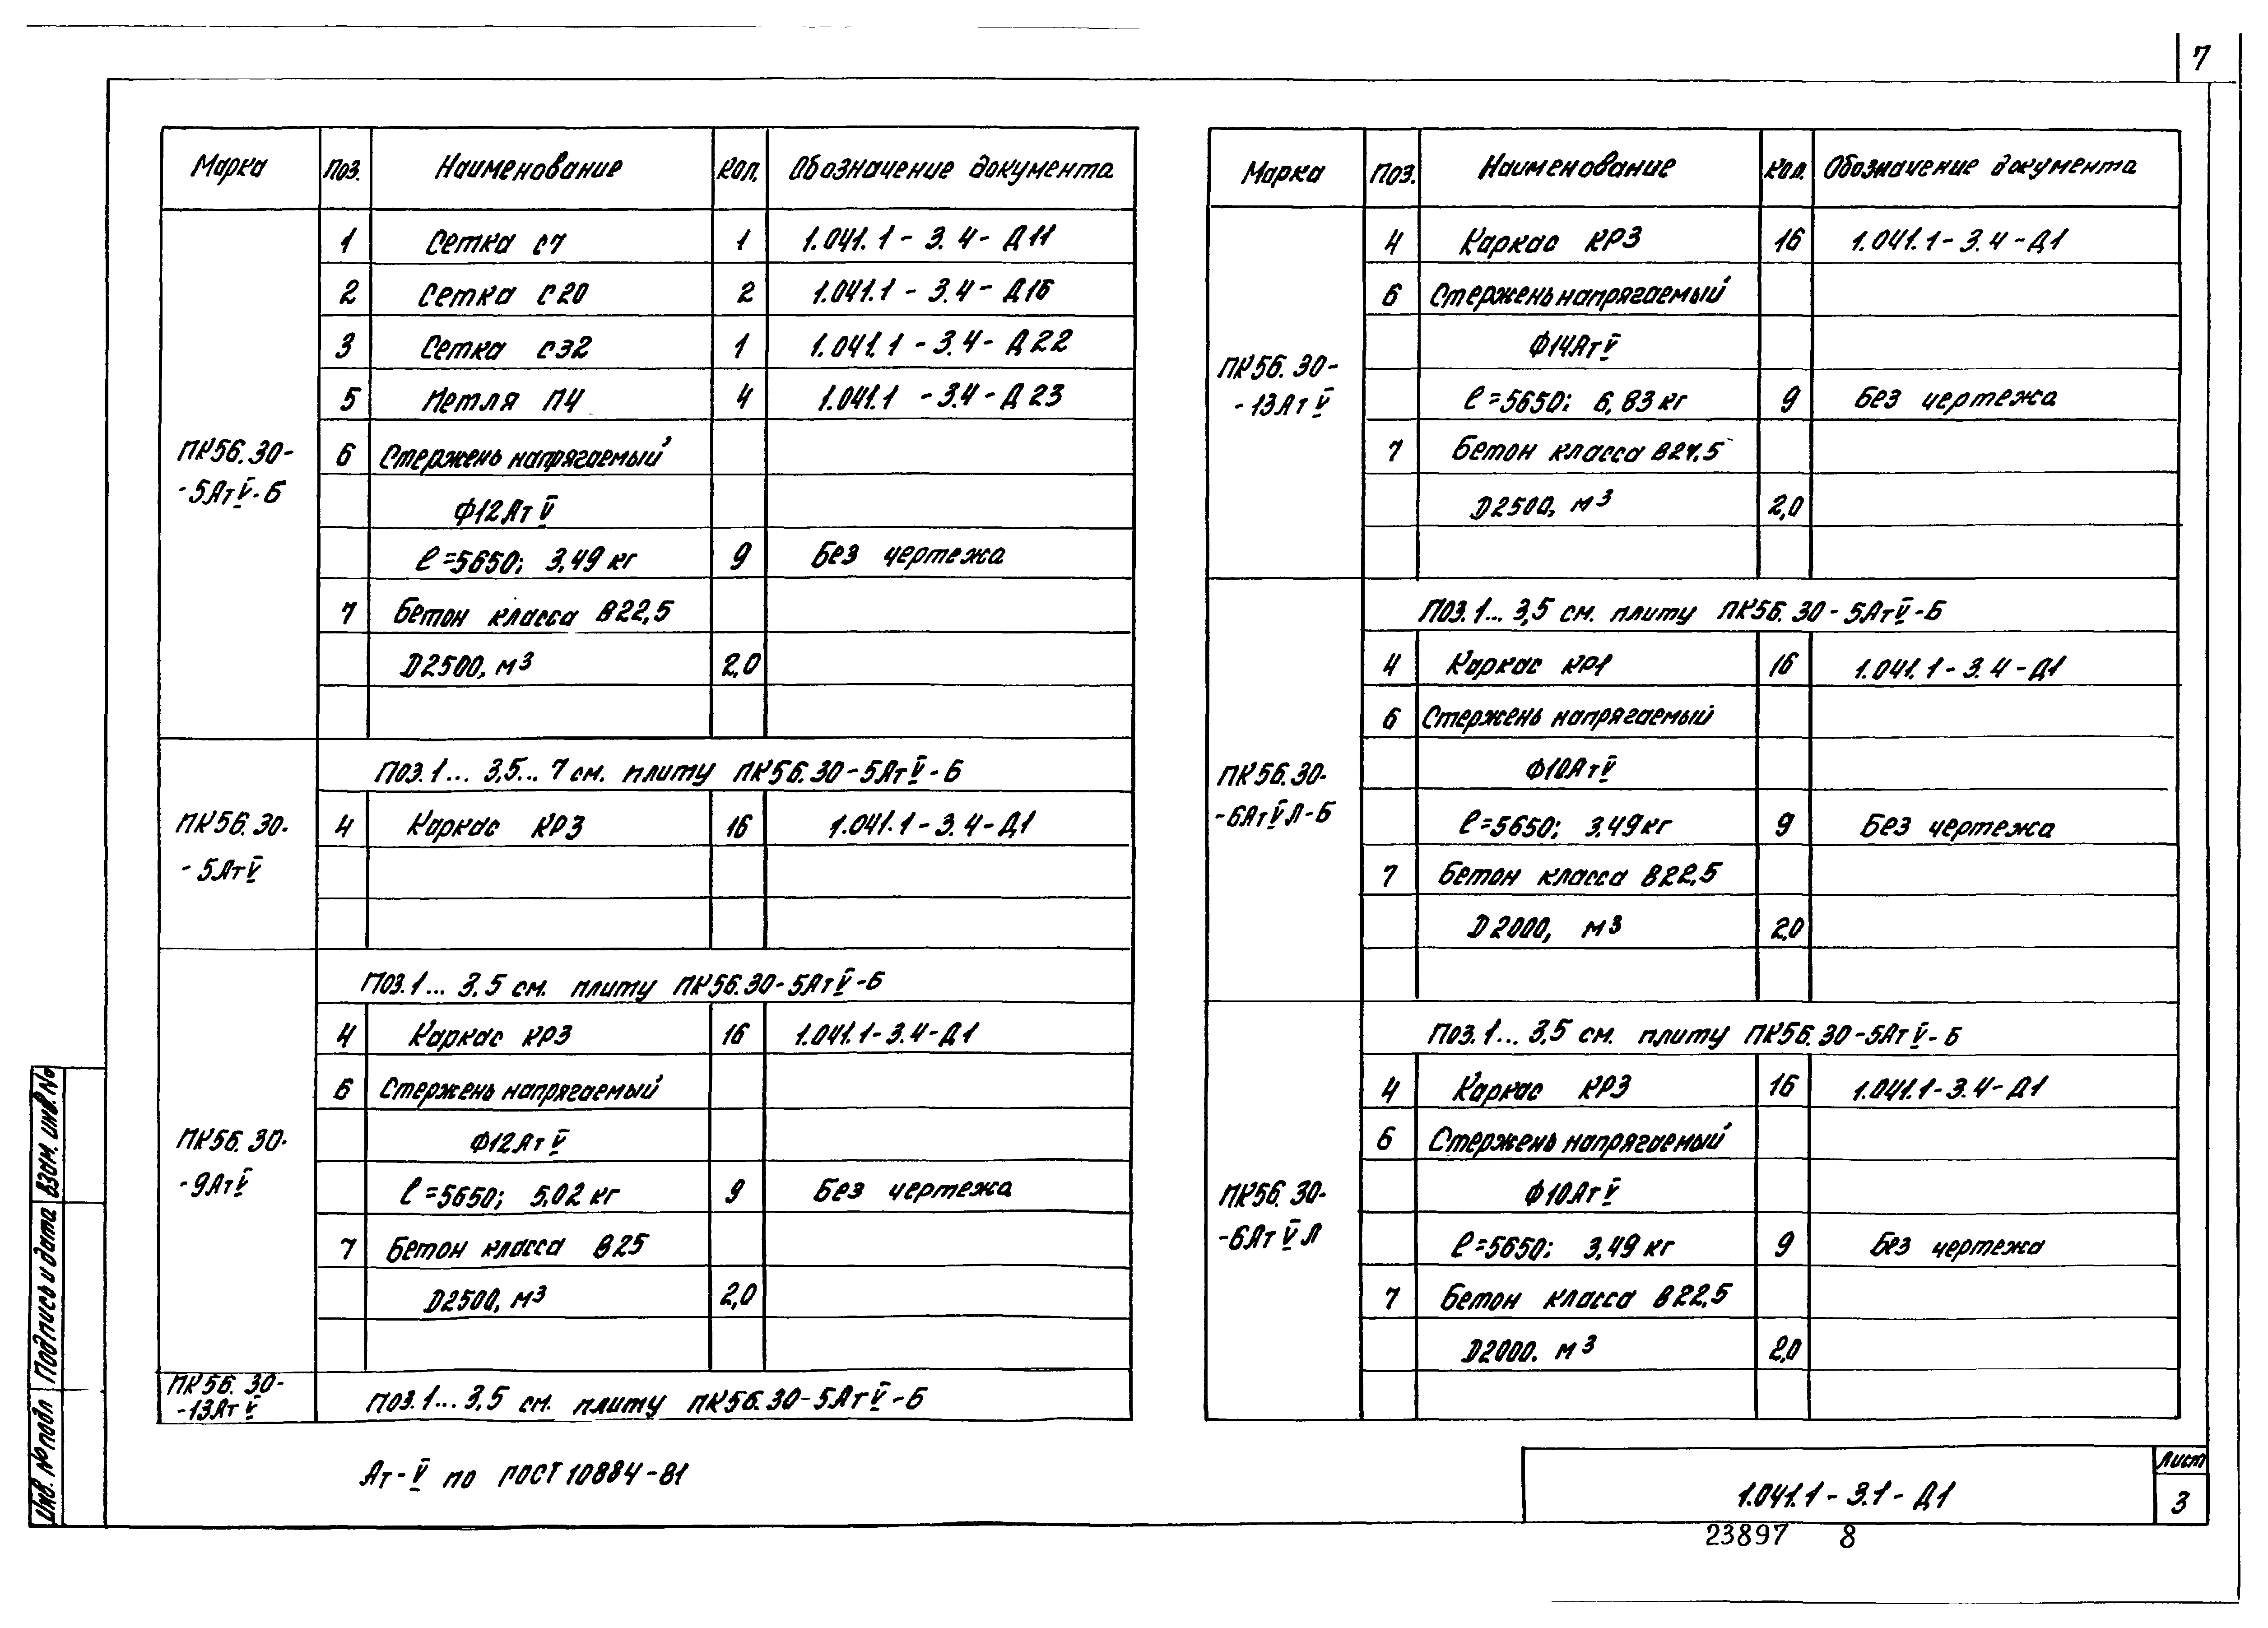 7
Марка Поз. Наименование Кол. Обозначение документа
1 Сетка С7 1 1.041.1-3.4-Д11
2 Сетка С20 2 1.041.1-3.4-Д16
3 Сетка С32 1 1.041.1-3.4-Д22
5 Петля П4 4 1.041.1-3.4-Д23
ПК56.30-
-5АтV-Б
6 Стержень напрягаемый
Ф12АтV
ℓ=5650; 3,49 кг 9 Без чертежа
7 Бетон класса В22,5
D2500, м3 2,0
Поз.1... 3,5... 7 см. плиту ПК56.30-5АтV-Б
ПК56.30-
-5АтV
4 Каркас КР3 16 1.041.1-3.4-Д1
Поз.1... 3,5 см. плиту ПК56.30-5АтV-Б
4 Каркас КР3 16 1.041.1-3.4-Д1
6 Стержень напрягаемый
ПК56.30-
-9АтV
Ф12АтV
ℓ=5650; 5,02 кг 9 Без чертежа
7 Бетон класса В25
D2500, м3 2,0
ПК56.30-
-13АтV
Поз.1... 3,5 см. плиту ПК56.30-5АтV-Б
Марка Поз. Наименование Кол. Обозначение документа
4 Каркас КР3 16 1.041.1-3.4-Д1
6 Стержень напрягаемый
Ф14АтV
ПК56.30-
-13АтV
ℓ=5650; 6,83 кг 9 Без чертежа
7 Бетон класса В27,5
D2500, м3 2,0
Поз.1... 3,5 см. плиту ПК56.30-5АтV-Б
4 Каркас КР1 16 1.041.1-3.4-Д1
6 Стержень напрягаемый
Ф10АтV
ПК56.30-
-6АтVЛ-Б
ℓ=5650; 3,49 кг 9 Без чертежа
7 Бетон класса В22,5
D2000, м3 2,0
Поз.1... 3,5 см. плиту ПК56.30-5АтV-Б
4 Каркас КР3 16 1.041.1-3.4-Д1
6 Стержень напрягаемый
Ф10АтV
ПК56.30-
-6АтVЛ
ℓ=5650; 3,49 кг 9 Без чертежа
7 Бетон класса В22,5
D2000. м3 2,0
Ат-V по ГОСТ 10884-81
1.041.1-3.1-Д1
Лист
3
23897 8
Инв. № подл Подпись и дата Взам. инв. №